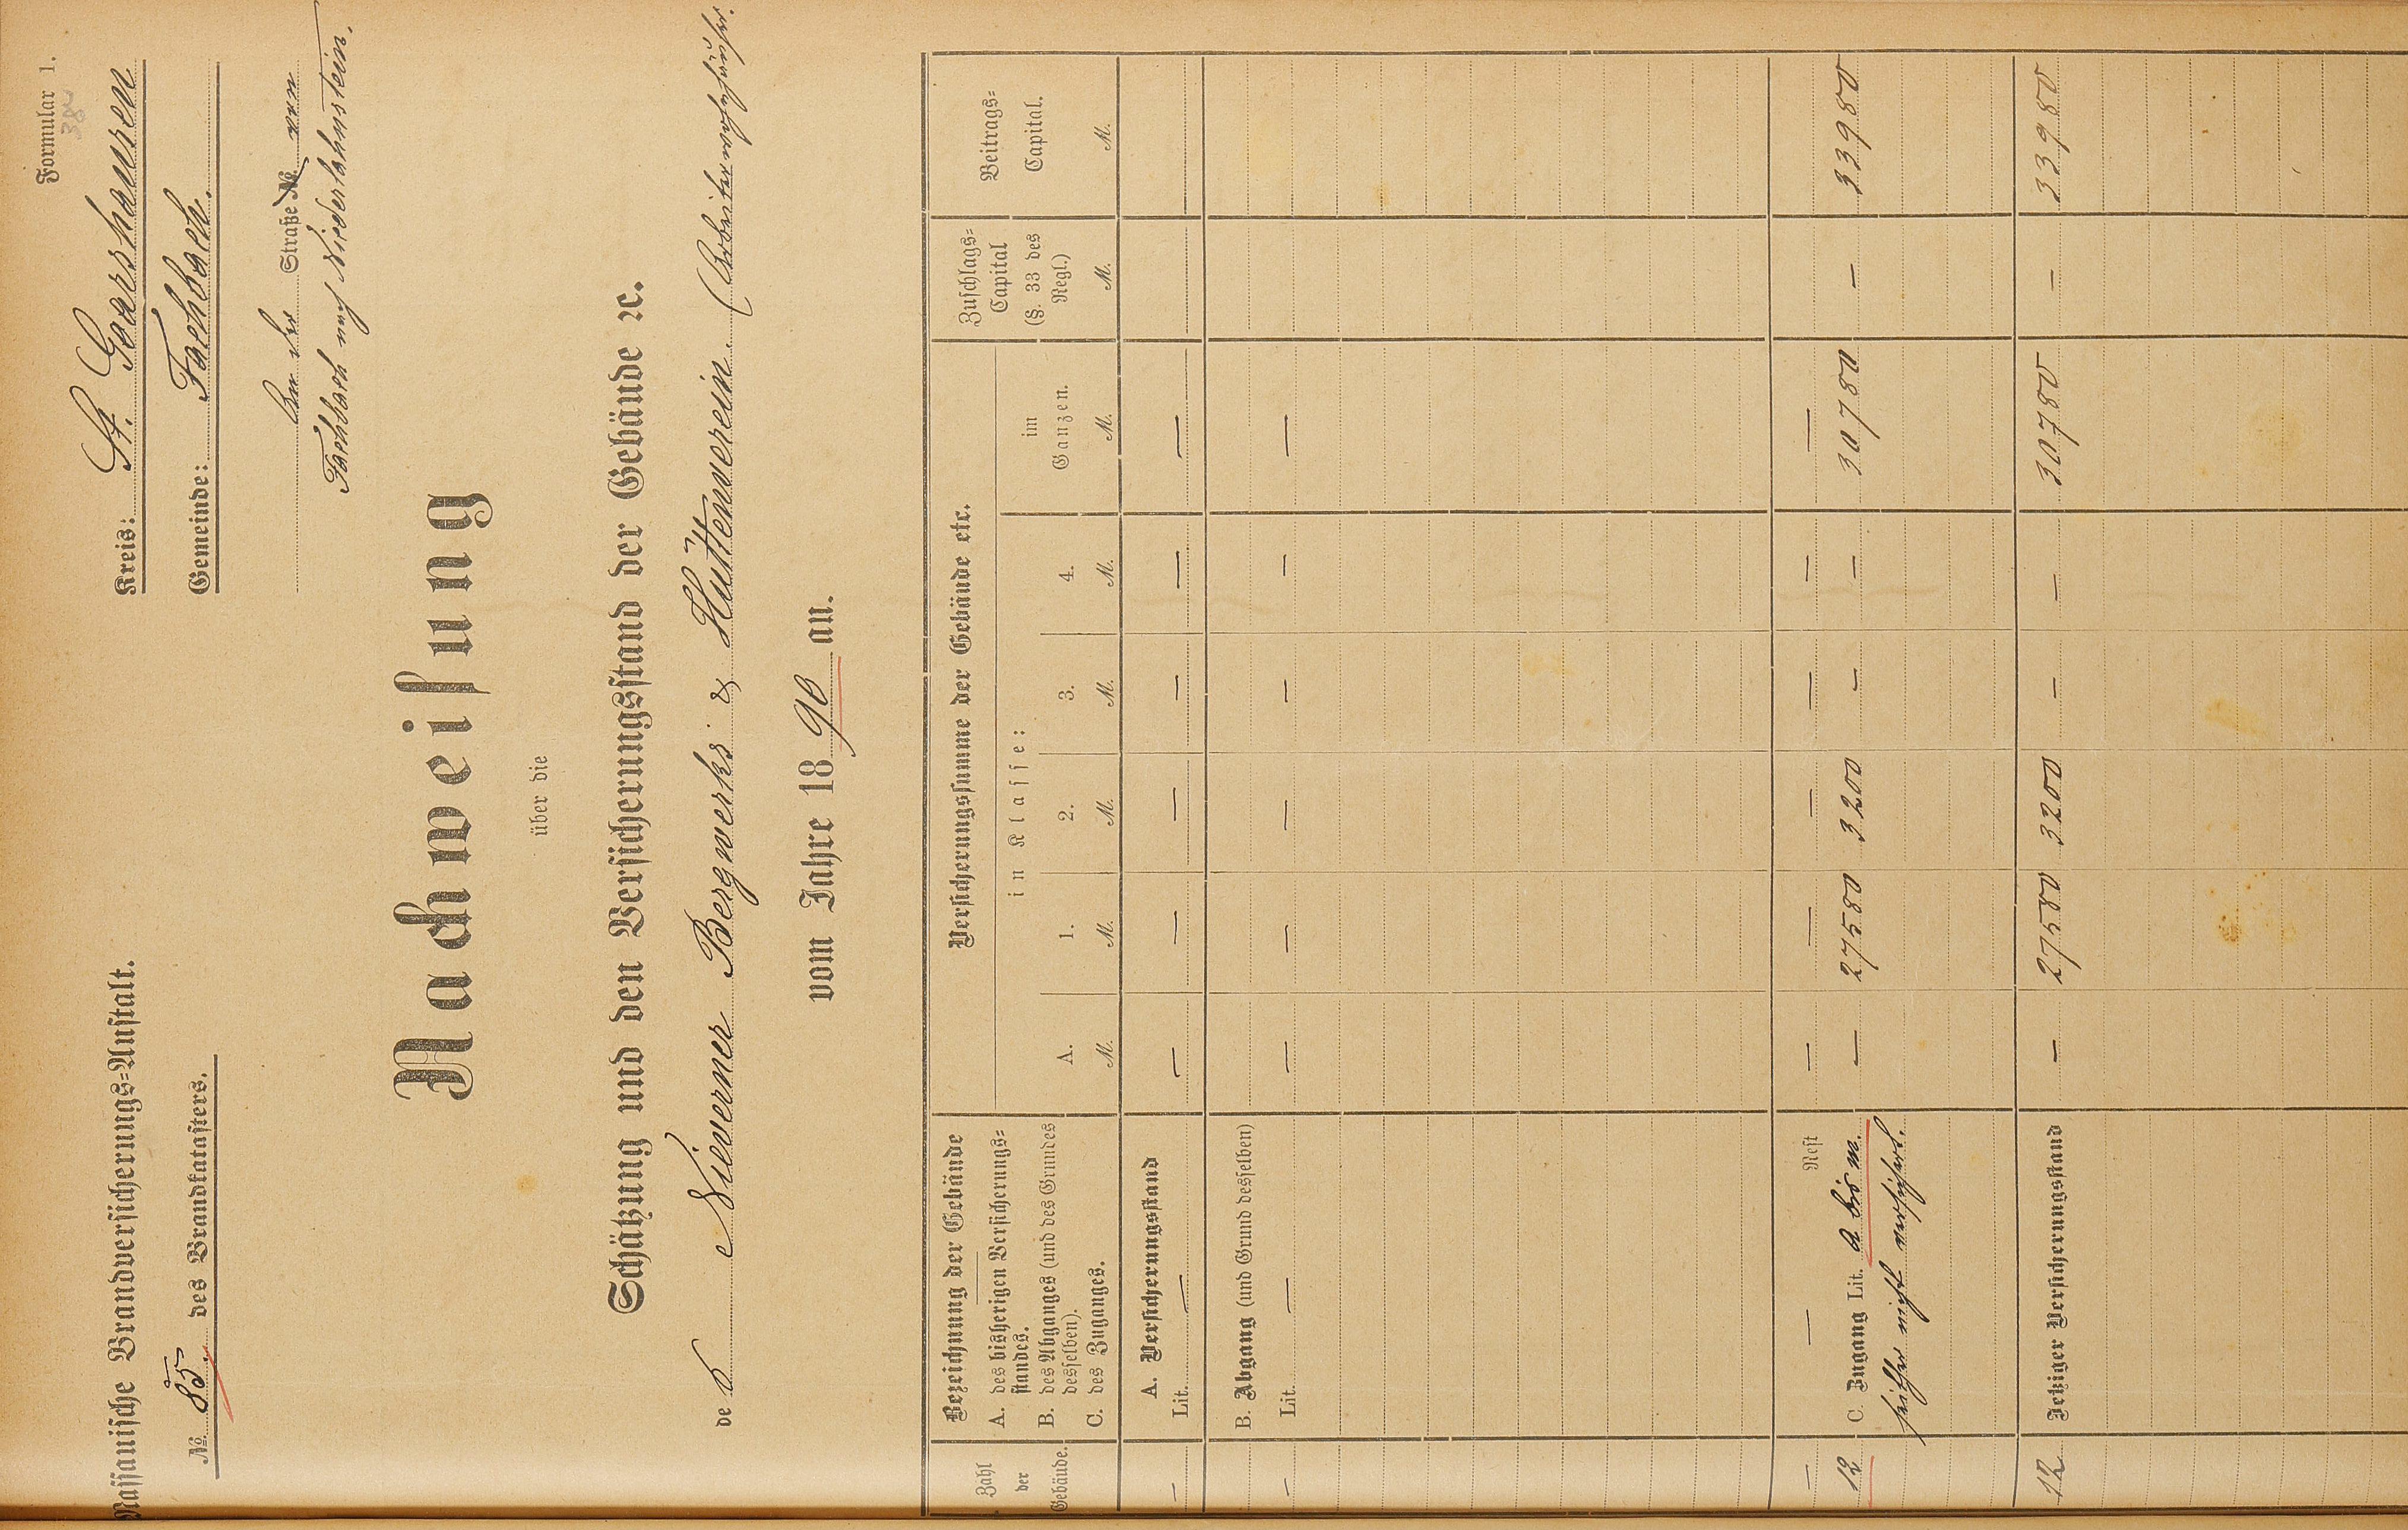 Formular 1.
Nassauische Brandversicherungs-Anstalt.
Kreis: St. Goarshausen
№ 85. des Brandkatasters.
Gemeinde: Fachbach.
An der Straße № von
Fachbach nach Niederlahnstein.
Nachweisung
über die
Schätzung und den Versicherungsstand der Gebäude ꝛc.
de s Nieverner Bergwerks & Hüttenverein. (Arbeiterwohnhäuser.
vom Jahre 1890 an.
Zahl der Gebäude.
Bezeichnung der Gebäude
A. des bisherigen Versicherungs-
standes.
B. des Abganges (und des Grundes
desselben).
C. des Zuganges.
Versicherungssumme der Gebäude etc.
in Klasse:
A. 1. 2. 3. 4.
M. M. M. M. M.
im
Ganzen.
M.
Zuschlags-
Capital
(§. 33 des
Regl.)
M.
Beitrags-
Capital.
M.
A. Versicherungsstand
— Lit. — — — — — — —
B. Abgang (und Grund desselben)
— Lit. — — — — — — —
— — Rest — — — — — —
12 C. Zugang Lit. a bis m. — 27580 3200 — — 30780 — 33980
seither nicht versichert.
12 Jetziger Versicherungsstand — 27580 3200 — — 30780 — 33980